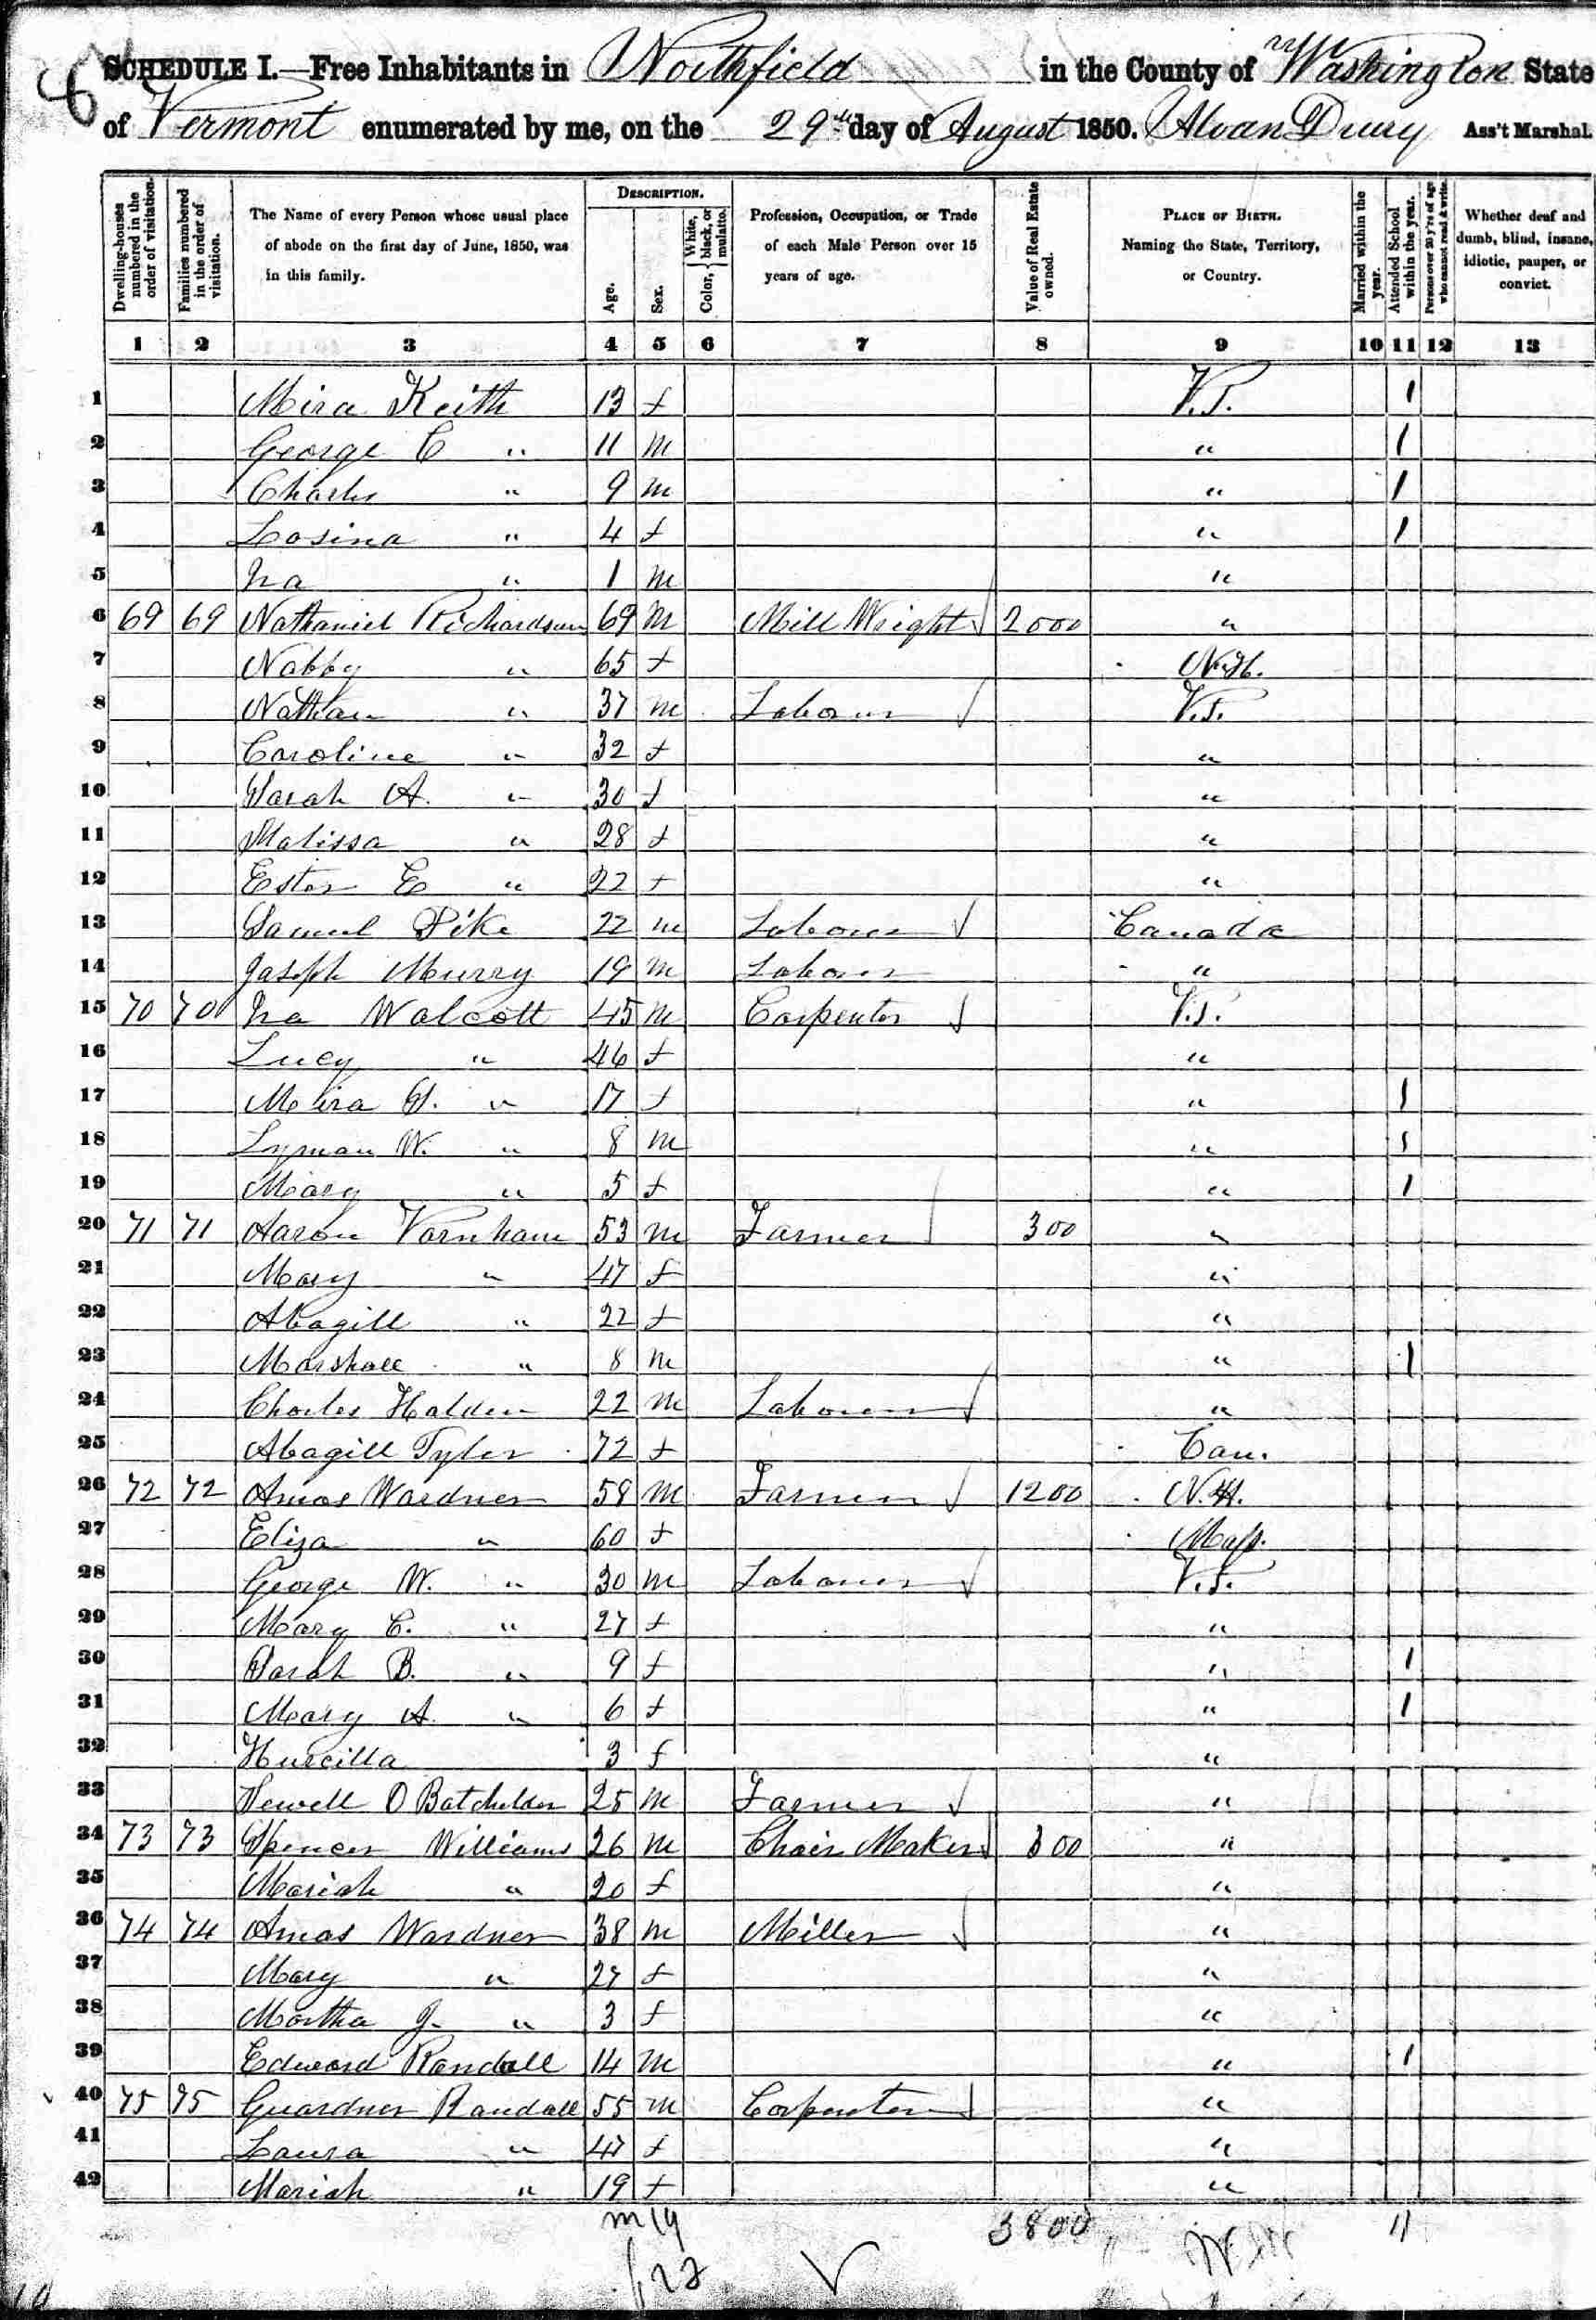 SCHEDULE I.—Free Inhabitants in Northfield in the County of Washington State
of Vermont enumerated by me, on the 29th day of August 1850. Alvan Drury Ass't Marshal.
Dwelling-houses numbered in the order of visitation.
Families numbered in the order of visitation.
The Name of every Person whose usual place of abode on the first day of June, 1850, was in this family.
DESCRIPTION.
Age.
Sex.
Color, { White, black, or mulatto.
Profession, Occupation, or Trade of each Male Person over 15 years of age.
Value of Real Estate owned.
PLACE OF BIRTH. Naming the State, Territory, or Country.
Married within the year.
Attended School within the year.
Persons over 20 y'rs of age who cannot read & write.
Whether deaf and dumb, blind, insane, idiotic, pauper, or convict.
1 2 3 4 5 6 7 8 9 10 11 12 13
1 Mira Keith 13 f V.T. 1
2 George C " 11 m " 1
3 Charles " 9 m " 1
4 Losina " 4 f " 1
5 Ira " 1 m "
6 69 69 Nathaniel Richardson 69 m Mill Wright 2000 "
7 Nabby " 65 f N.H.
8 Nathan " 37 m Labourer V.T.
9 Caroline " 32 f "
10 Sarah A. " 30 f "
11 Malissa " 28 f "
12 Ester E " 22 f "
13 Samuel Pike 22 m Labourer Canada
14 Joseph Murry 19 m Labourer "
15 70 70 Ira Walcott 45 m Carpenter V.T.
16 Lucy " 46 f "
17 Mira S. " 17 f " 1
18 Lyman W. " 8 m " 1
19 Mary " 5 f " 1
20 71 71 Aaron Varnham 53 m Farmer 300 "
21 Mary " 47 f "
22 Abagill " 22 f "
23 Marshall " 8 m " 1
24 Charles Halden 22 m Labourer "
25 Abagill Tyler 72 f
26 72 72 Amos Wardner 58 m Farmer 1200 N.H.
27 Eliza " 60 f Mass.
28 George W. " 30 m Labourer V.T.
29 Mary C. " 27 f "
30 Sarah B. " 9 f " 1
31 Mary A. " 6 f " 1
32 3 f "
33 Newell O Batchelder 25 m Farmer "
34 73 73 Spencer Williams 26 m Chair Maker 300 "
35 Mariah " 20 f "
36 74 74 Amos Wardner 38 m Miller "
37 Mary " 27 f "
38 Martha J. " 3 f "
39 Edward Randall 14 m " 1
40 75 75 Guardner Randall 55 m Carpenter "
41 Laura " 47 f "
42 Mariah " 19 f "
m 19 3800 11
f 23